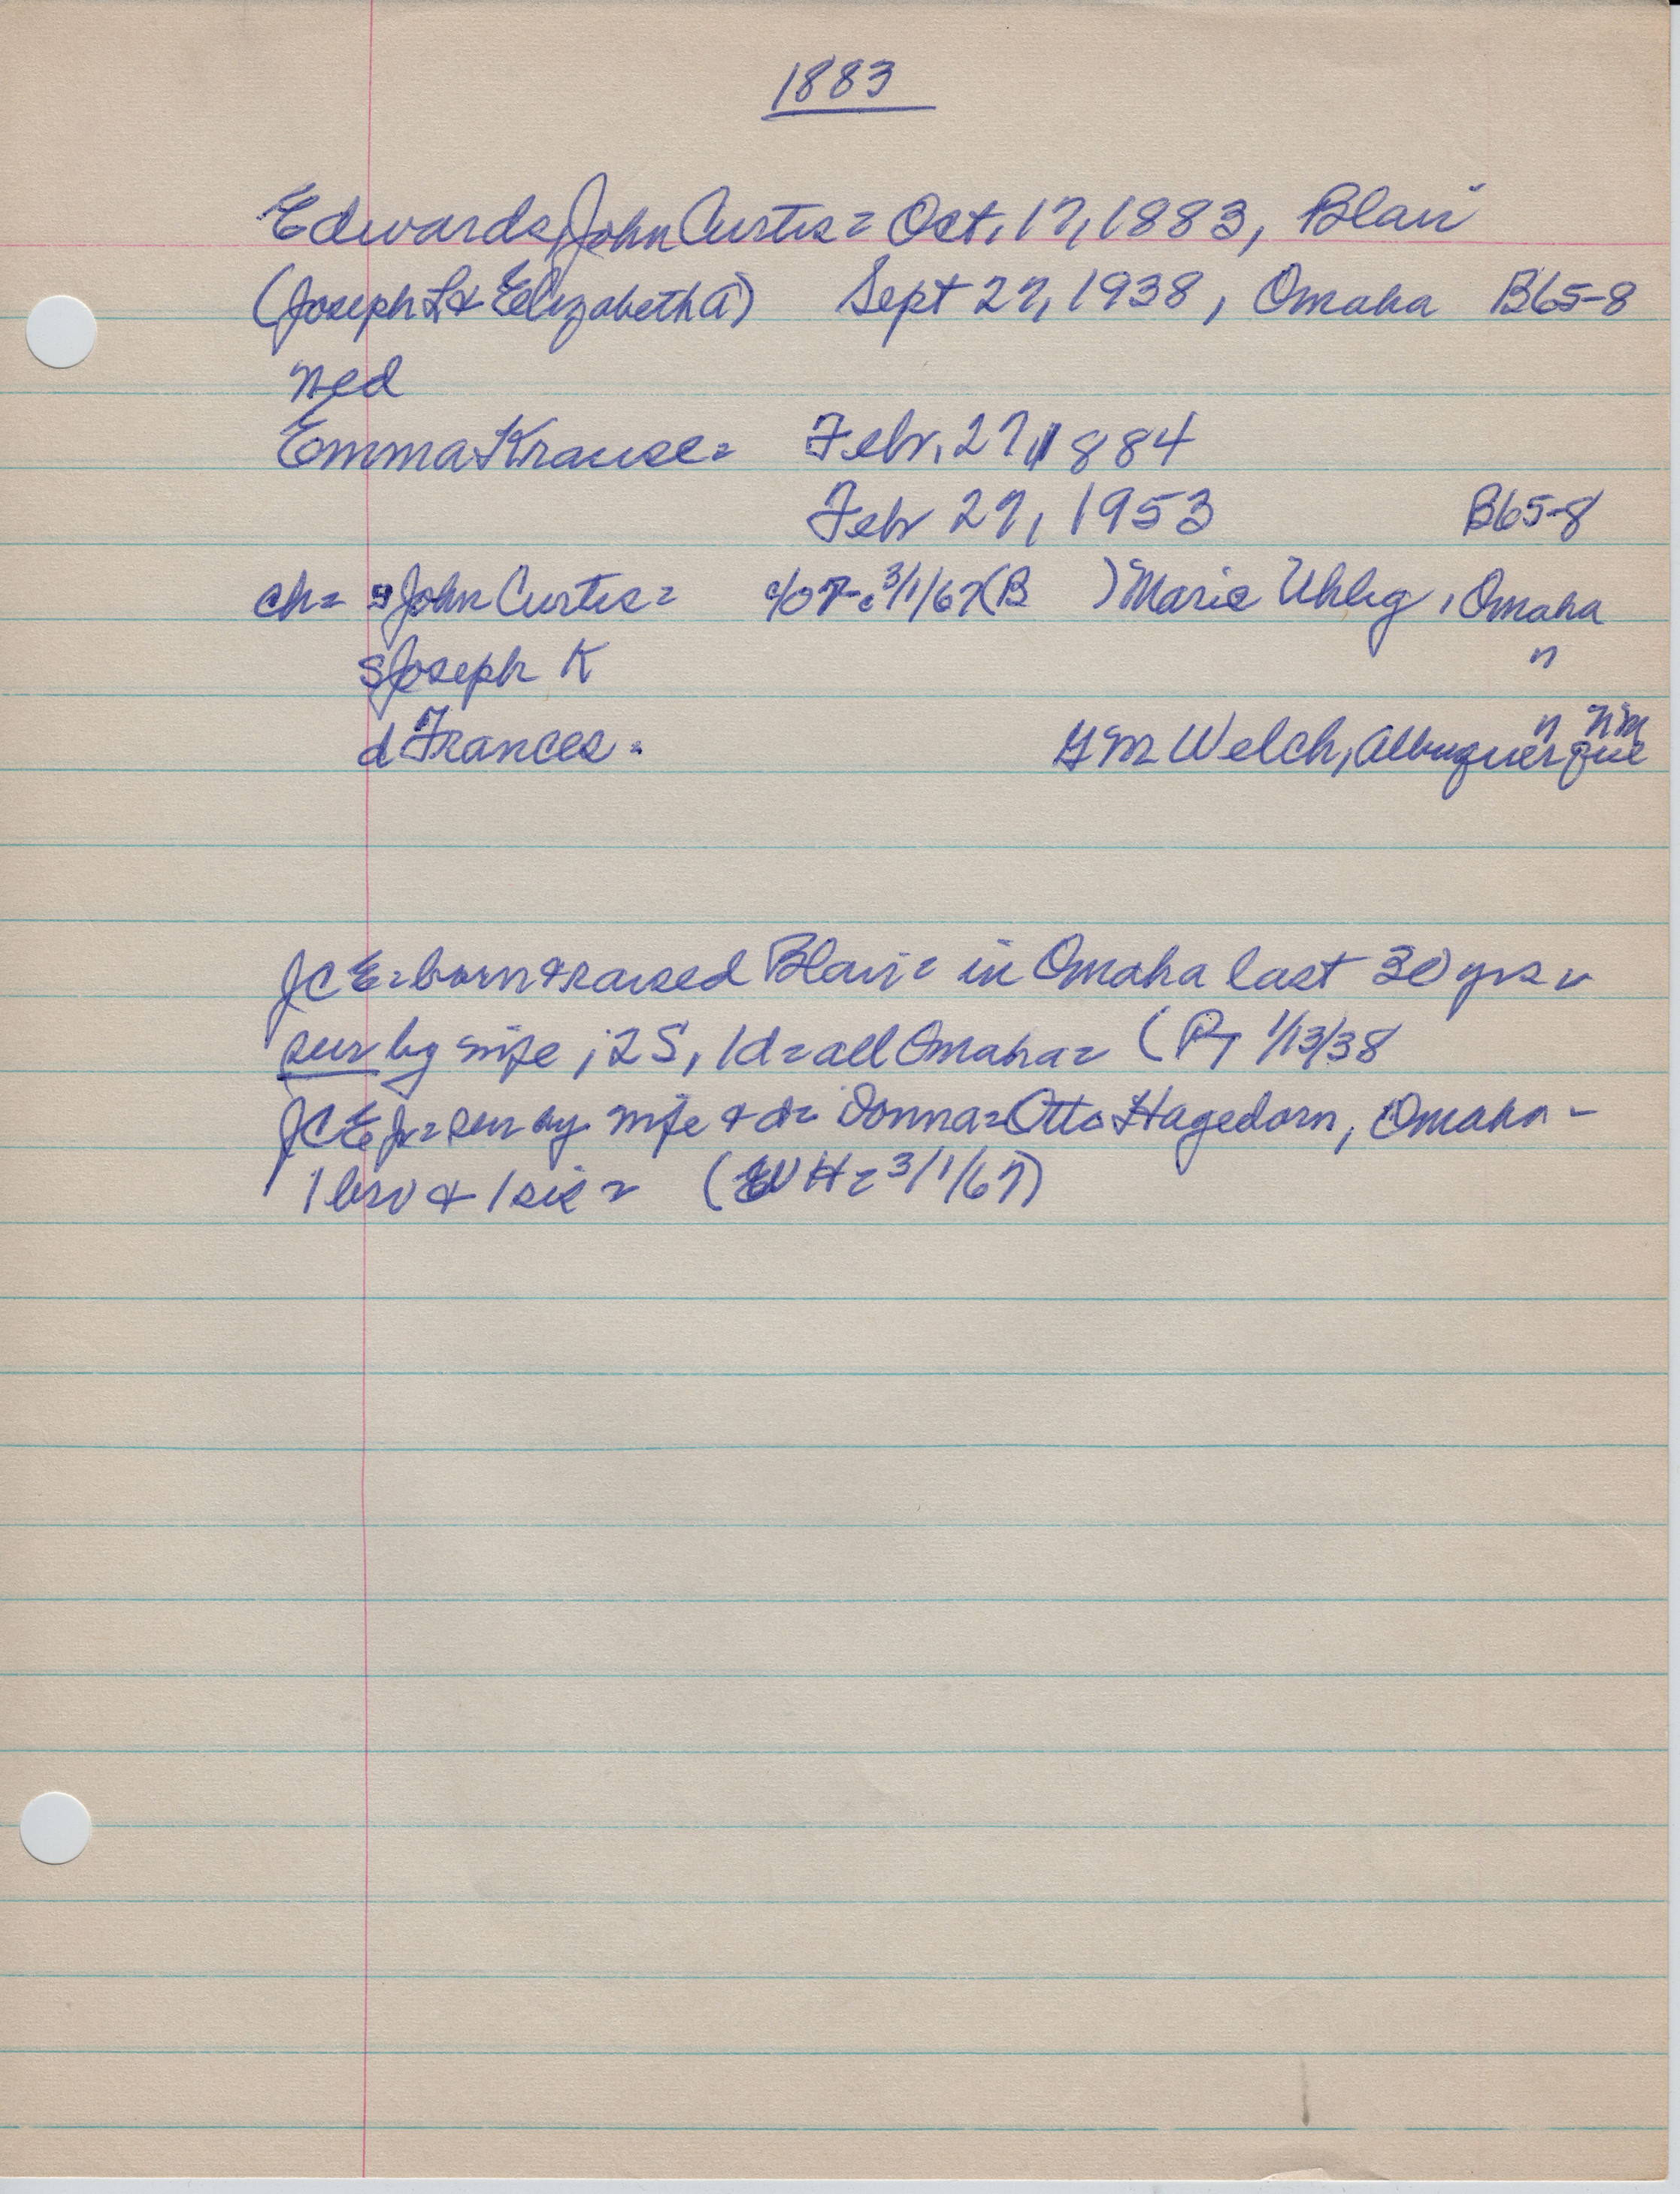 1883
Edwards, John Curtis = Oct. 17, 1883, Blair
(Joseph L & Elizabeth A) Sept 27, 1938, Omaha B65-8
Ned
Emma Krause = Febr. 27, 1884
Febr 27, 1953 B65-8
ch = s John Curtis = 3/1/67 (B ) Marie Uhlig, Omaha
s Joseph K "
d Frances = G M Welch, Albuquerque " NM
JCE = born & raised Blair = in Omaha last 30 yrs
sur by wife, 2 S, 1 d = all Omaha = (P, 1/13/38
JCE Jr = sur by wife & d = Donna = Otto Hagedorn, Omaha -
1 bro & 1 sis = (EWH = 3/1/67)